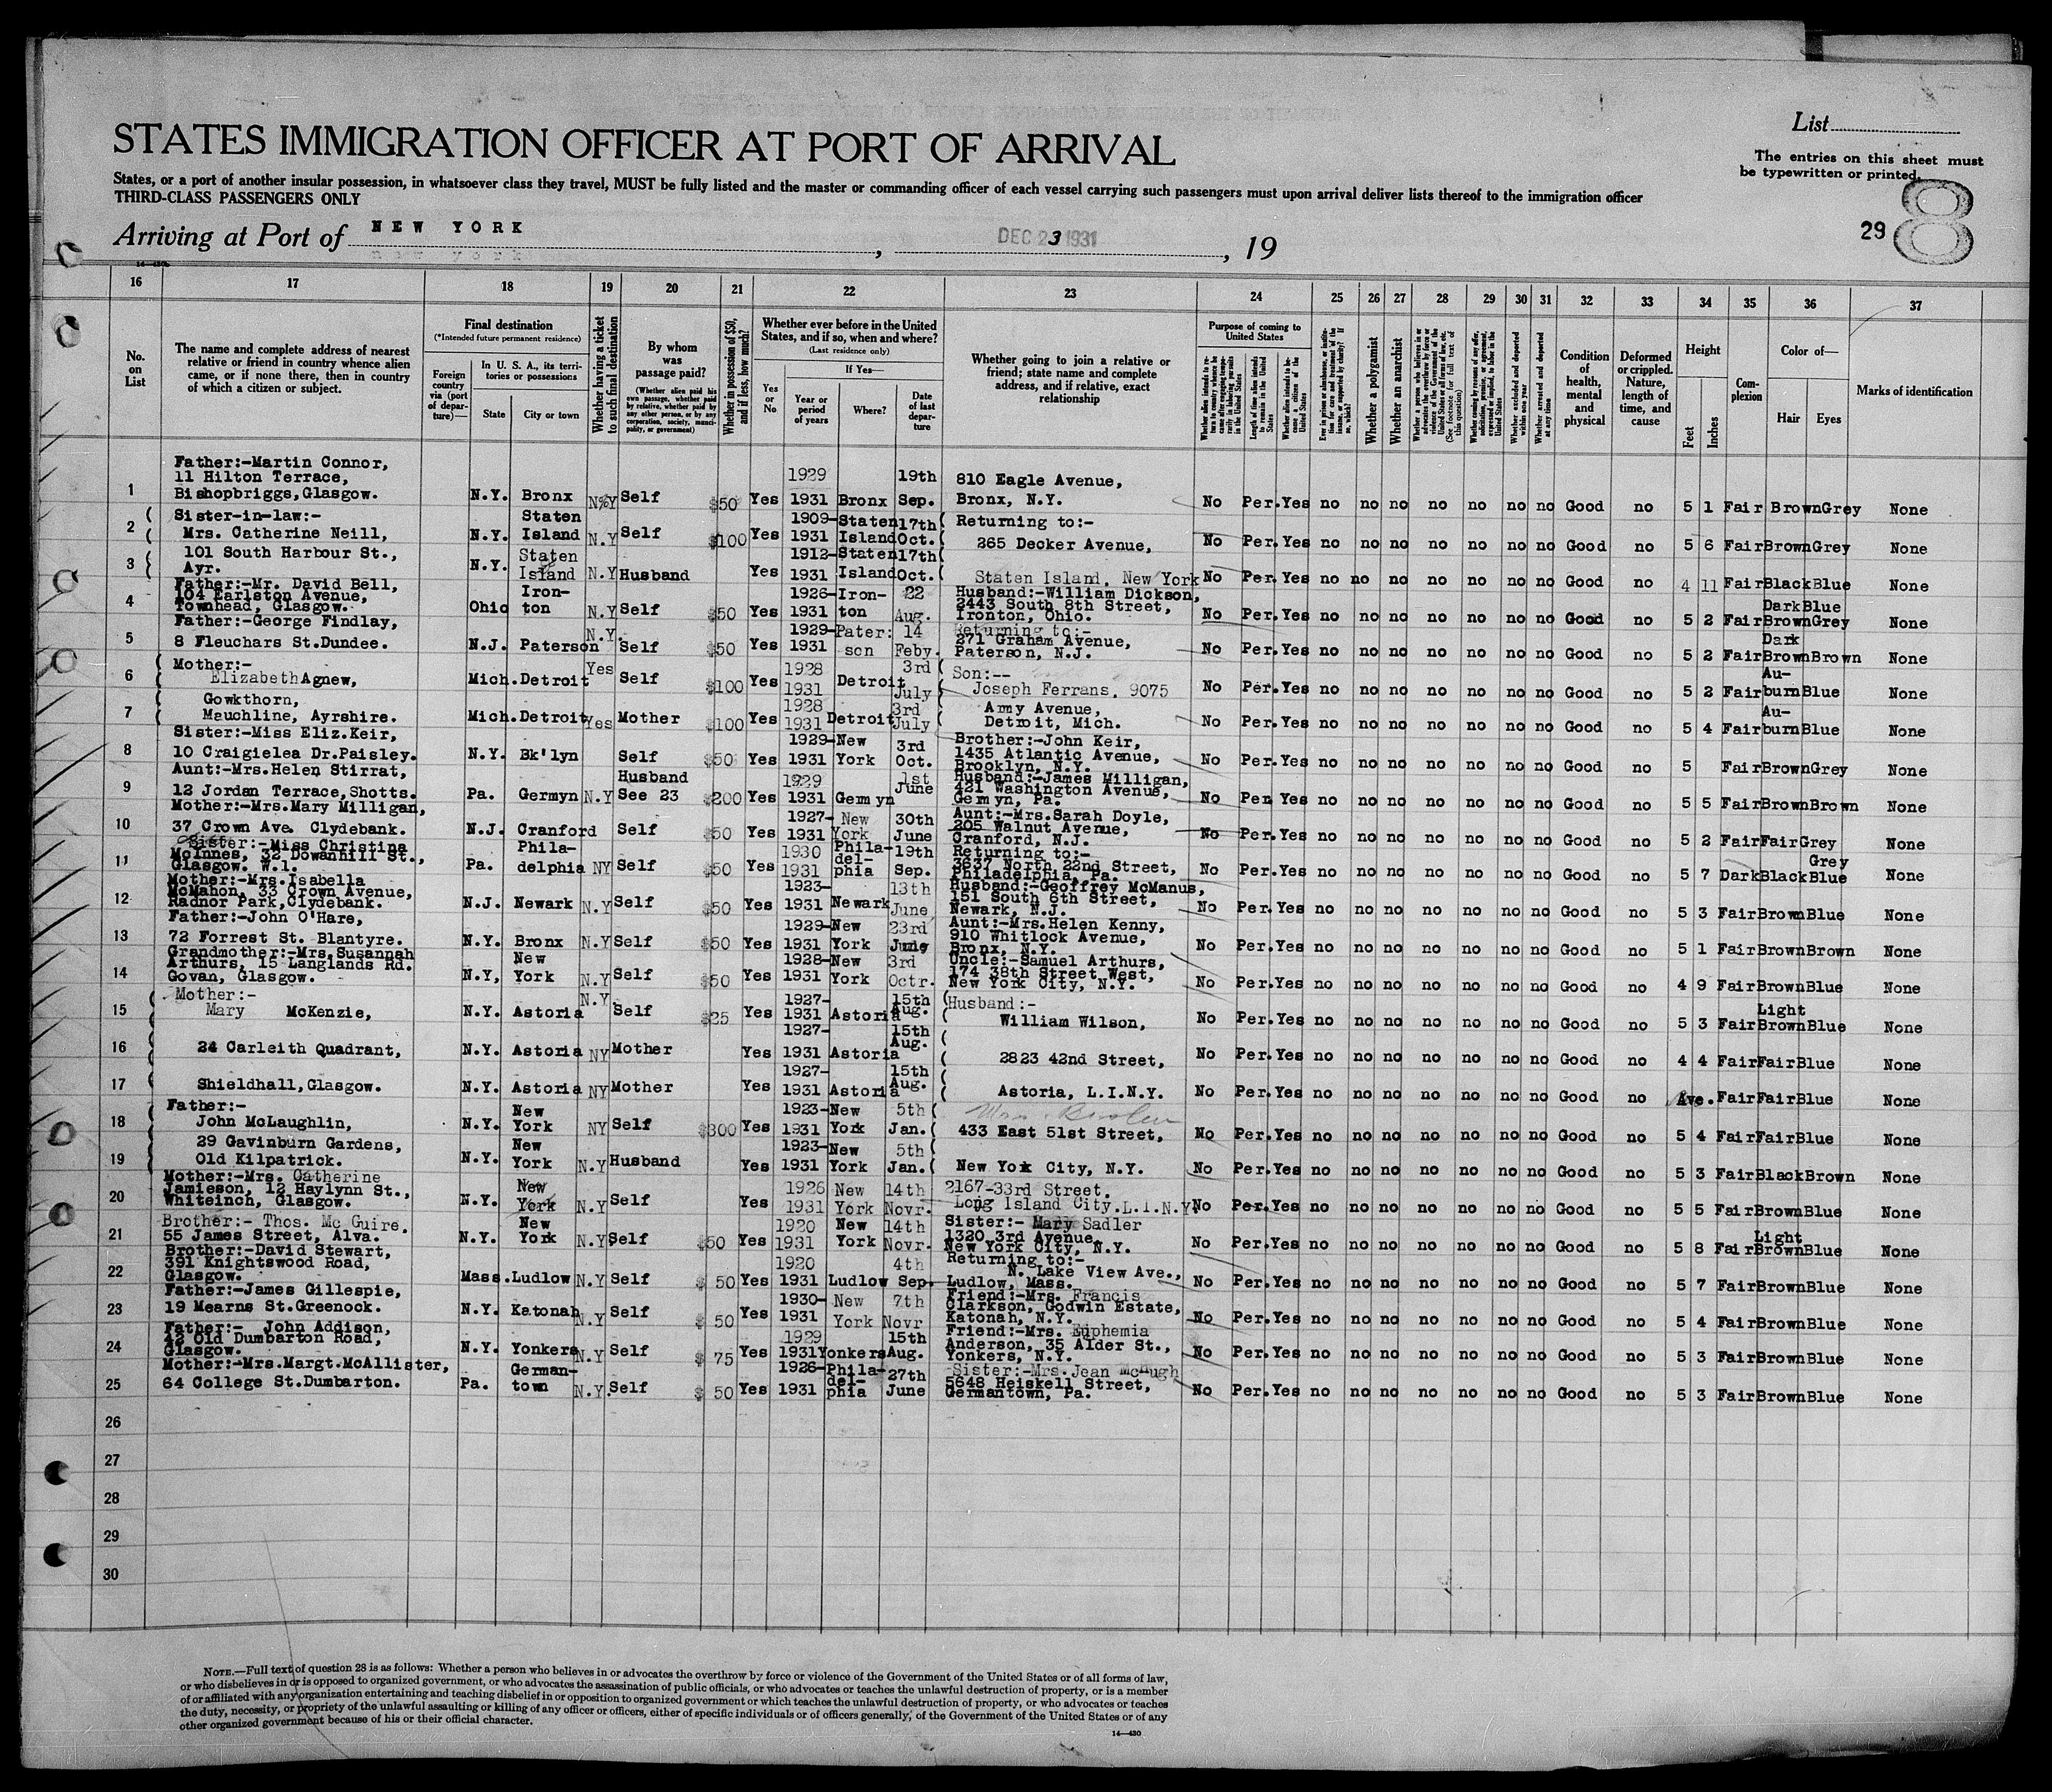 List
STATES IMMIGRATION OFFICER AT PORT OF ARRIVAL
The entries on this sheet must
be typewritten or printed.
States, or a port of another insular possession, in whatsoever class they travel, MUST be fully listed and the master or commanding officer of each vessel carrying such passengers must upon arrival deliver lists thereof to the immigration officer
THIRD-CLASS PASSENGERS ONLY
Arriving at Port of NEW YORK, DEC 23 1931, 19
29 8
16 17 18 19 20 21 22 23 24 25 26 27 28 29 30 31 32 33 34 35 36 37
No. on List
The name and complete address of nearest relative or friend in country whence alien came, or if none there, then in country of which a citizen or subject.
Final destination
(*Intended future permanent residence)
Foreign country via (port of departure)—
In U. S. A., its territories or possessions
State
City or town
Whether having a ticket to such final destination
By whom was passage paid?
(Whether alien paid his own passage, whether paid by relative, whether paid by any other person, or by any corporation, society, municipality, or government)
Whether in possession of $50, and if less, how much?
Whether ever before in the United States, and if so, when and where?
(Last residence only)
Yes or No
If Yes—
Year or period of years
Where?
Date of last departure
Whether going to join a relative or friend; state name and complete address, and if relative, exact relationship
Purpose of coming to United States
Whether a polygamist
Whether an anarchist
Condition of health, mental and physical
Deformed or crippled. Nature, length of time, and cause
Height
Feet
Inches
Complexion
Color of—
Hair
Eyes
Marks of identification
1 Father:-Martin Connor, 11 Hilton Terrace, Bishopbriggs,Glasgow. N.Y. Bronx NY Self $50 Yes 1929 1931 Bronx 19th Sep. 810 Eagle Avenue, Bronx, N.Y. No Per. Yes no no no no no no no Good no 5 1 Fair Brown Grey None
2 Sister-in-law:- Mrs. Catherine Neill, N.Y. Staten Island N.Y Self $100 Yes 1909-1931 Staten Island 17th Oct. Returning to:- 265 Decker Avenue, No Per. Yes no no no no no no no Good no 5 6 Fair Brown Grey None
3 101 South Harbour St., Ayr. N.Y. Staten Island N.Y Husband Yes 1912-1931 Staten Island 17th Oct. Staten Island, New York No Per. Yes no no no no no no no Good no 4 11 Fair Black Blue None
4 Father:-Mr. David Bell, 104 Earlston Avenue, Townhead, Glasgow. Ohio Iron-ton N.Y Self $50 Yes 1926-1931 Iron-ton 22 Aug. Husband:-William Dickson, 2443 South 8th Street, Ironton, Ohio. No Per. Yes no no no no no no no Good no 5 2 Fair Dark Brown Blue Grey None
5 Father:-George Findlay, 8 Fleuchars St.Dundee. N.J. Paterson N.Y. Self $50 Yes 1929-1931 Pater:son 14 Feby. Returning to:- 271 Graham Avenue, Paterson, N.J. No Per. Yes no no no no no no no Good no 5 2 Fair Dark Brown Brown None
6 Mother:- Elizabeth Agnew, Mich. Detroit Yes Self $100 Yes 1928 1931 Detroit 3rd July Son:-- Joseph Ferrans, 9075 No Per. Yes no no no no no no no Good no 5 2 Fair Au-burn Blue None
7 Gowkthorn, Mauchline, Ayrshire. Mich. Detroit Yes Mother $100 Yes 1928 1931 Detroit 3rd July Army Avenue, Detroit, Mich. No Per. Yes no no no no no no no Good no 5 4 Fair Au-burn Blue None
8 Sister:-Miss Eliz.Keir, 10 Craigielea Dr.Paisley. N.Y. Bk'lyn Self $50 Yes 1929-1931 New York 3rd Oct. Brother:-John Keir, 1435 Atlantic Avenue, Brooklyn, N.Y. No Per. Yes no no no no no no no Good no 5 Fair Brown Grey None
9 Aunt:-Mrs.Helen Stirrat, 12 Jordan Terrace,Shotts. Pa. Germyn N.Y Husband See 23 $200 Yes 1929 1931 Germyn 1st June Husband:-James Milligan, 421 Washington Avenue, Germyn, Pa. No Per Yes no no no no no no no Good no 5 5 Fair Brown Brown None
10 Mother:-Mrs.Mary Milligan, 37 Crown Ave. Clydebank. N.J. Cranford Self $50 Yes 1927-1931 New York 30th June Aunt:-Mrs.Sarah Doyle, 205 Walnut Avenue, Cranford, N.J. No Per. Yes no no no no no no no Good no 5 2 Fair Fair Grey None
11 Sister:-Miss Christina McInnes, 32 Dowanhill St., Glasgow. W.1. Pa. Phila-delphia NY Self $50 Yes 1930 1931 Phila-del-phia 19th Sep. Returning to:- 3637 North 22nd Street, Philadelphia, Pa. No Per. Yes no no no no no no no Good no 5 7 Dark Black Grey Blue None
12 Mother:-Mrs.Isabella McMahon, 33 Crown Avenue, Radnor Park,Clydebank. N.J. Newark N.Y Self $50 Yes 1923-1931 Newark 13th June Husband:-Geoffrey McManus, 151 South 6th Street, Newark, N.J. No Per. Yes no no no no no no no Good no 5 3 Fair Brown Blue None
13 Father:-John O'Hare, 72 Forrest St. Blantyre. N.Y. Bronx N.Y Self $50 Yes 1929-1931 New York 23rd Aunt:-Mrs.Helen Kenny, 910 Whitlock Avenue, Bronx, N.Y. No Per. Yes no no no no no no no Good no 5 1 Fair Brown Brown None
14 Grandmother:-Mrs.Susannah Arthurs, 15 Langlands Rd. Govan, Glasgow. N.Y, New York N.Y Self $50 Yes 1928-1931 New York 3rd Octr. Uncle:-Samuel Arthurs, 174 38th Street West, New York City, N.Y. No Per. Yes no no no no no no no Good no 4 9 Fair Brown Blue None
15 Mother:- Mary McKenzie, N.Y. Astoria N.Y. Self $25 Yes 1927-1931 Astoria 15th Aug. Husband:- William Wilson, No Per. Yes no no no no no no no Good no 5 3 Fair Light Brown Blue None
16 24 Carleith Quadrant, N.Y. Astoria NY Mother Yes 1927-1931 Astoria 15th Aug. 2823 42nd Street, No Per. Yes no no no no no no no Good no 4 4 Fair Fair Blue None
17 Shieldhall,Glasgow. N.Y. Astoria NY Mother Yes 1927-1931 Astoria 15th Aug. Astoria, L.I.N.Y. No Per. Yes no no no no no no no Good no Ave. Fair Fair Blue None
18 Father:- John McLaughlin, N.Y. New York NY Self $300 Yes 1923-1931 New York 5th Jan. 433 East 51st Street, No Per. Yes no no no no no no no Good no 5 4 Fair Fair Blue None
19 29 Gavinburn Gardens, Old Kilpatrick. N.Y. New York N.Y Husband Yes 1923-1931 New York 5th Jan. New York City, N.Y. No Per. Yes no no no no no no no Good no 5 3 Fair Black Brown None
20 Mother:-Mrs. Catherine Jamieson, 12 Haylynn St., Whiteinch, Glasgow. N.Y. New York N.Y Self Yes 1926 1931 New York 14th Novr. 2167-33rd Street. Long Island City.L.I.N.Y. No Per. Yes no no no no no no no Good no 5 5 Fair Brown Blue None
21 Brother:- Thos. Mc Guire, 55 James Street, Alva. N.Y. New York N.Y. Self $50 Yes 1920 1931 New York 14th Novr. Sister:- Mary Sadler 1320 3rd Avenue, New York City, N.Y. No Per. Yes no no no no no no no Good no 5 8 Fair Light Brown Blue None
22 Brother:-David Stewart, 391 Knightswood Road, Glasgow. Mass. Ludlow N.Y Self $ 50 Yes 1920 1931 Ludlow 4th Sep. Returning to:- N. Lake View Ave., Ludlow, Mass. No Per. Yes no no no no no no no Good no 5 7 Fair Brown Blue None
23 Father:-James Gillespie, 19 Mearns St.Greenock. N.Y. Katonah N.Y Self $ 50 Yes 1930-1931 New York 7th Novr Friend:-Mrs. Francis Clarkson, Godwin Estate, Katonah, N.Y. No Per. Yes no no no no no no no Good no 5 4 Fair Brown Blue None
24 Father:- John Addison, 42 Old Dumbarton Road, Glasgow. N.Y. Yonkers N.Y Self $ 75 Yes 1929 1931 Yonkers 15th Aug. Friend:-Mrs. Euphemia Anderson, 35 Alder St., Yonkers, N.Y. No Per. Yes no no no no no no no Good no 5 3 Fair Brown Blue None
25 Mother:-Mrs.Margt.McAllister, 64 College St.Dumbarton. Pa. German-town N.Y. Self $ 50 Yes 1926-1931 Phila-del-phia 27th June Sister:-Mrs.Jean McHugh 5648 Heiskell Street, Germantown, Pa. No Per. Yes no no no no no no no Good no 5 3 Fair Brown Blue None
26
27
28
29
30
NOTE.—Full text of question 28 is as follows: Whether a person who believes in or advocates the overthrow by force or violence of the Government of the United States or of all forms of law,
or who disbelieves in or is opposed to organized government, or who advocates the assassination of public officials, or who advocates or teaches the unlawful destruction of property, or is a member
of or affiliated with any organization entertaining and teaching disbelief in or opposition to organized government or which teaches the unlawful destruction of property, or who advocates or teaches
the duty, necessity, or propriety of the unlawful assaulting or killing of any officer or officers, either of specific individuals or of officers generally, of the Government of the United States or of any
other organized government because of his or their official character.
14—430